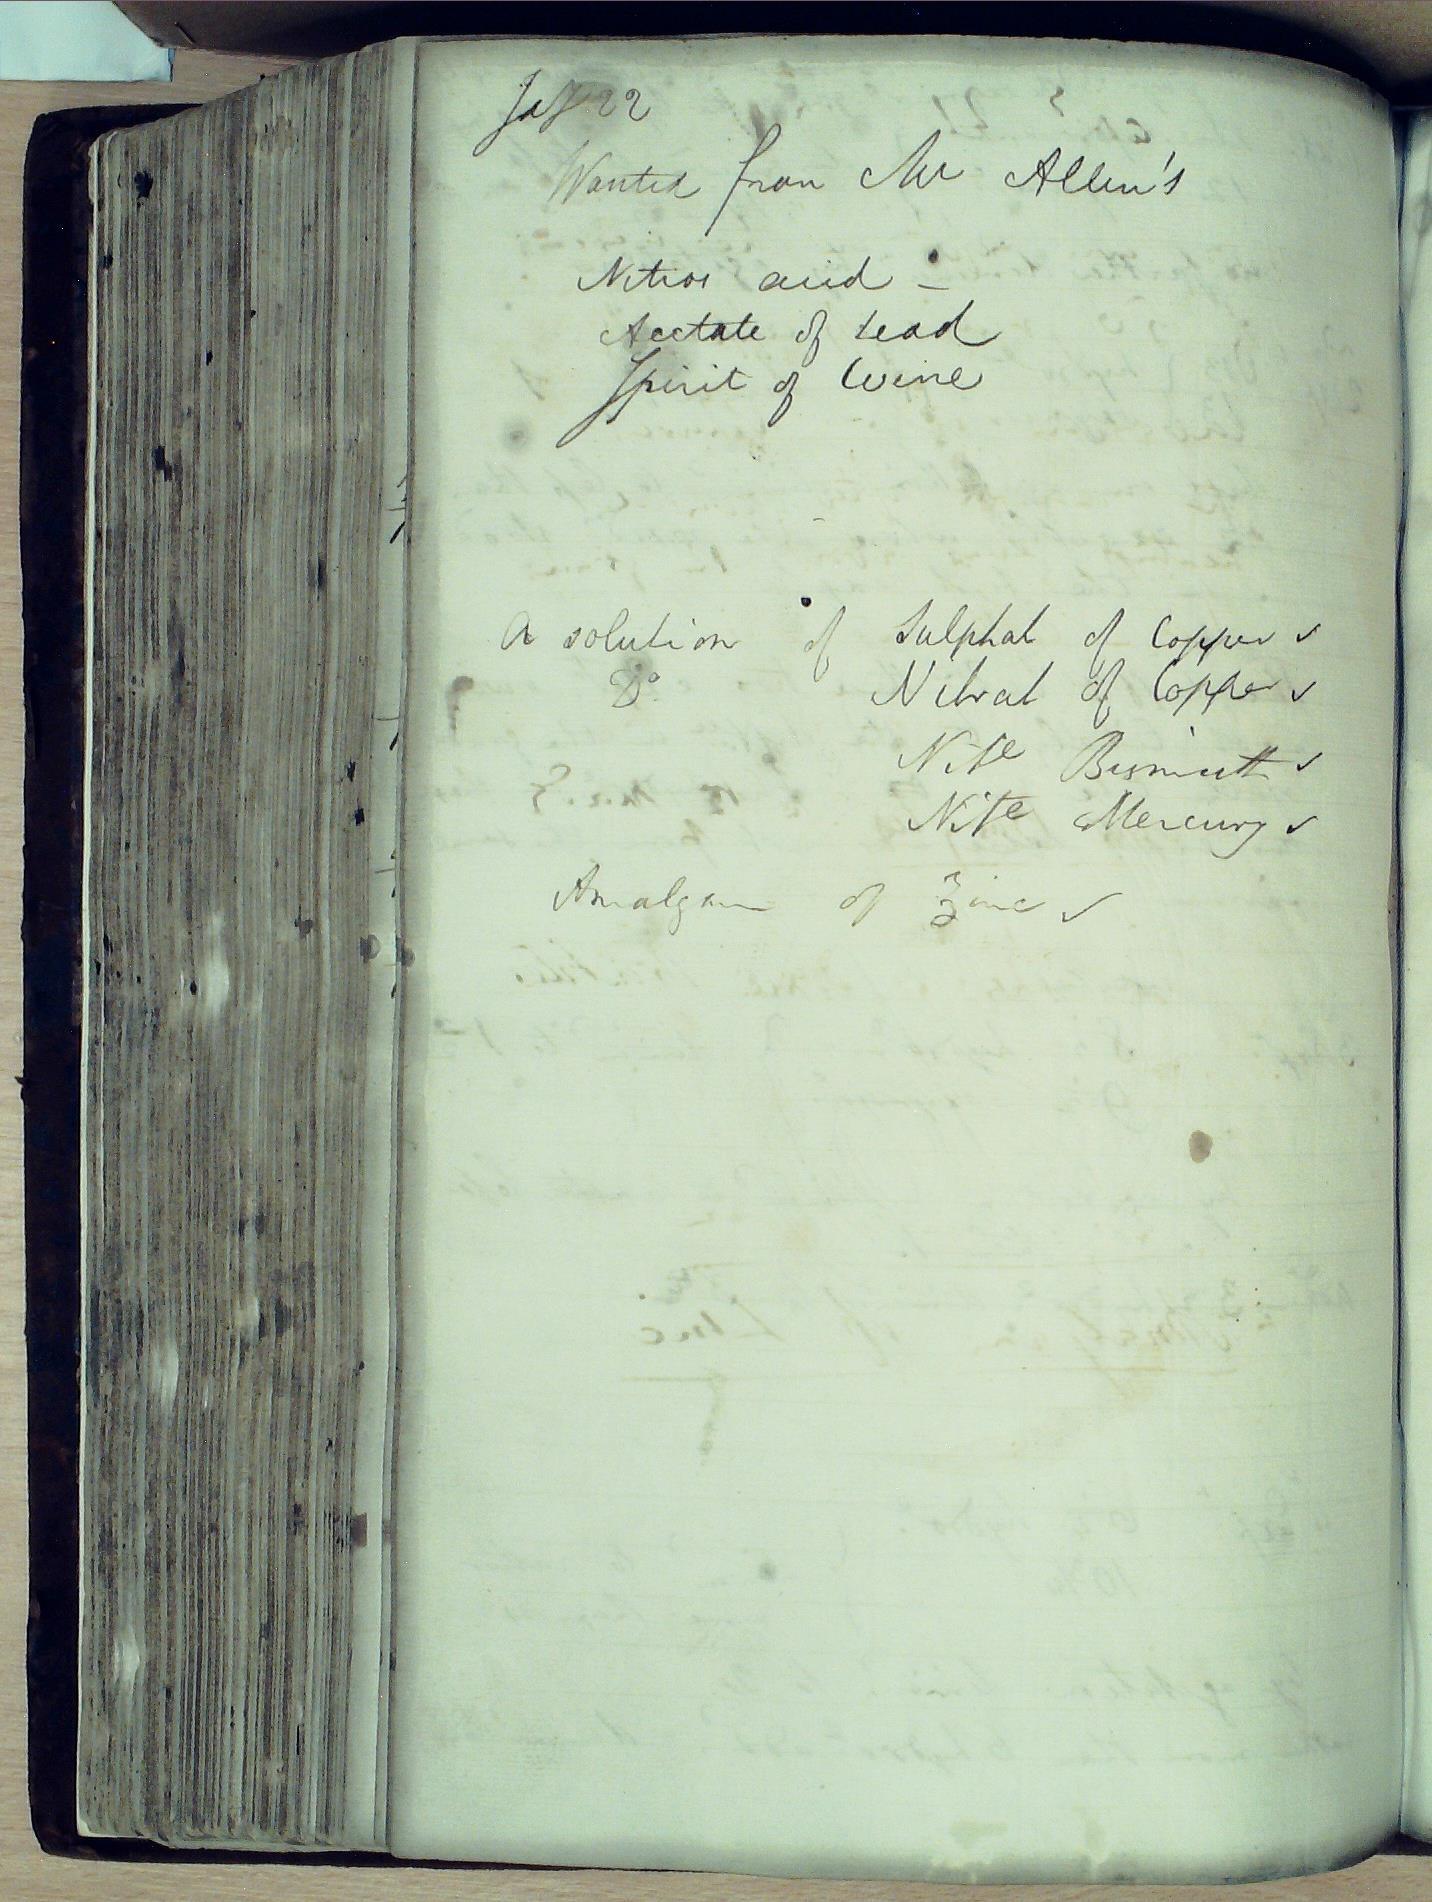 22
Wanted from Mr Allen's
Nitros acid –
Acetate of Lead
Spirit of Wine
A solution of Sulphat of Copper ✓
Do. Nitrat of Copper ✓
Nite Bismuth ✓
Nite Mercury ✓
Amalgam of Zinc ✓